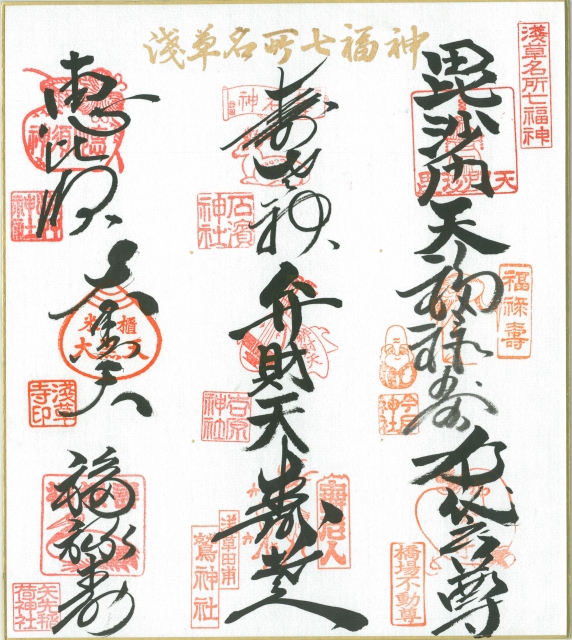 淺草名所七福神
淺草名所七福神
毘沙門天
福禄寿
福禄壽
今戸神社
布袋尊
橋場不動尊
寿老神
石濱神社
弁財天
吉原神社
寿老人
壽老人
浅草田甫
鷲神社
恵比須
大黒天
浅草寺印
福禄寿
矢先稲荷神社